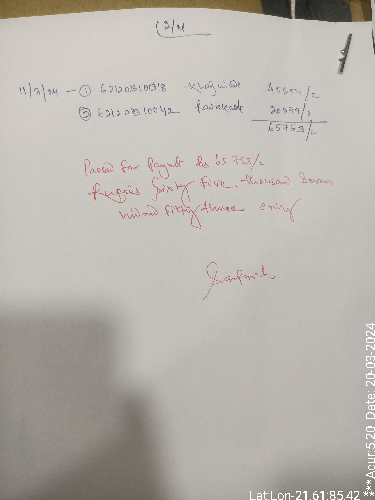 2/4
11/3/24 - ① 62120310098 45304/-
② 62120310042 20449/-
65753/-
Passed for Payment Rs 65753/-
Rupees Sixty Five thousand Seven
hundred Fifty three only
Lat:Lon-21.61:85.42 ***Acur:5.20 Date: 20-03-2024